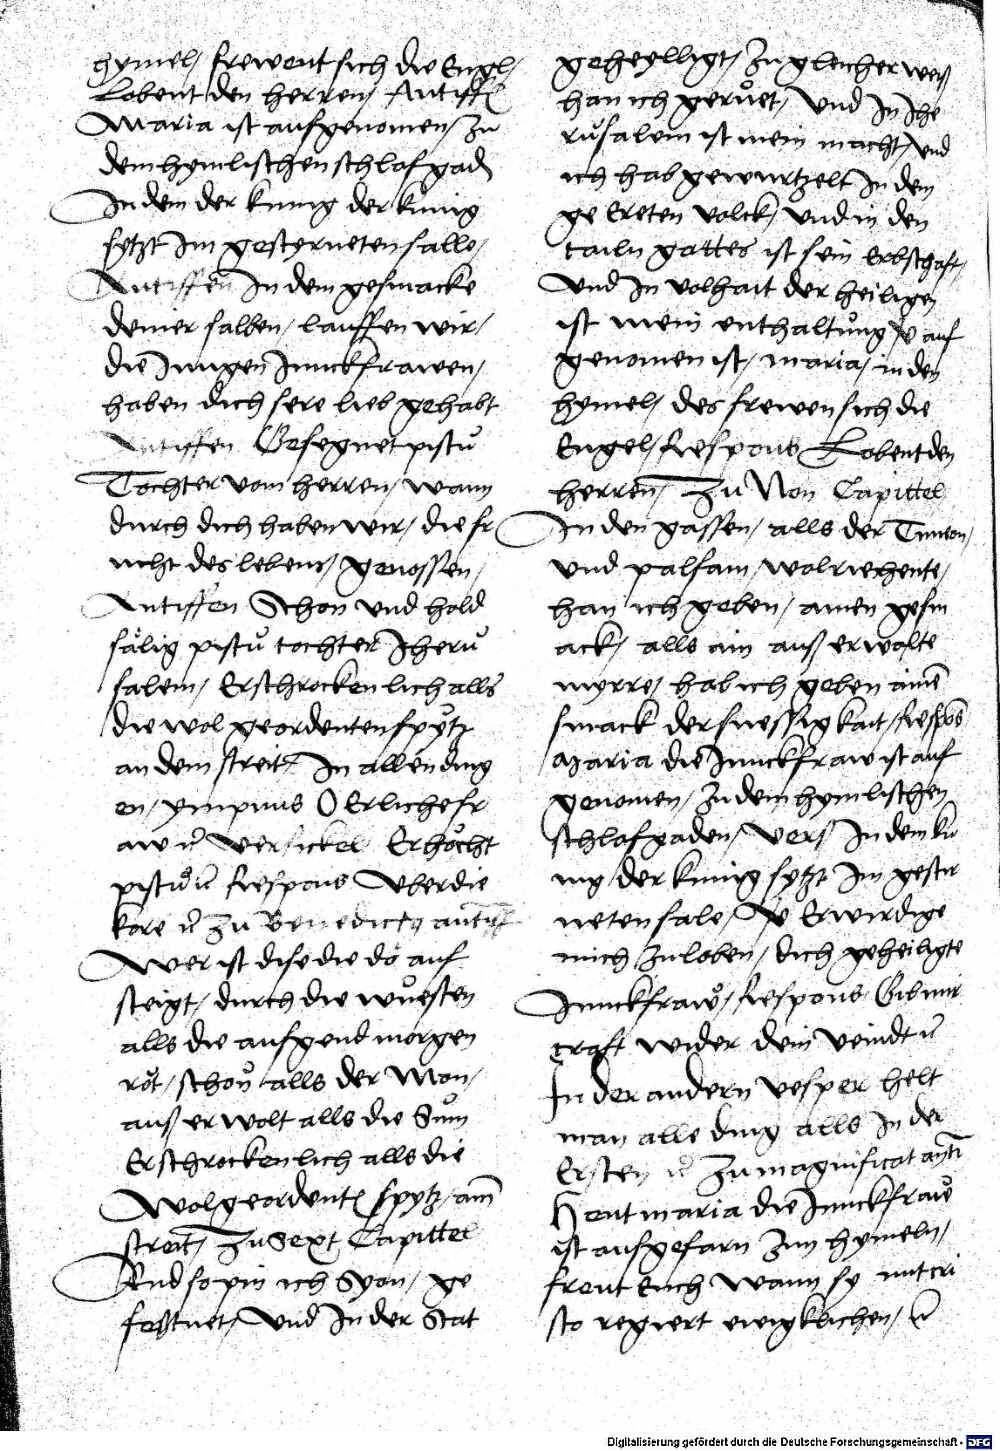 hymel/ frewent sich die Engl/
Lobent den herren/ Antiff
Maria ist aufgenomen/ zu
dem hymlischen schlafgadn
In dem der kunig der kunig
sytzt Im gesterneten salle/
Antiffen In dem gesmacke
deiner salben/ lauffen wir/
die Jungen Junckfrawen/
haben dich sere lieb gehabt
Antiffen Gesegnet pistu
Tochter vom herren/ wann
durch dich haben wir/ die fr
ucht des lebens/ genossen/
Antiffen Schon und hold
sälig pistu tochter Jheru
salem/ Erschrockenlich alls
die wol geordenten spytz
an dem streit/ In allen ding
en/ ympnus O Erliche fr
aw Versickel Erhöcht
pistu Respons Uber die
kore Zu Benedictus antiff
Wer ist dise die do auf
steigt/ durch die wuesten
alls die aufgend morgen
röt/ schon alls der Mon/
auß erwolt alls die Sun
Erschrockenlich alls die
Wolgeordent spytz/ am
streit/ Zu Sext Capittel
Und so pin ich Syon/ ge
festnet/ Und In der Stat
geheylligt/ Zu gleicher weis
han ich geruet/ Und In Jhe
rusalem ist mein macht/ und
ich hab gewurtzelt In dem
ge Ereten volck/ und in den
tailn gottes ist sein Erbschaft/
Und In volhait der heiligen
ist mein enthaltung auf
genomen ist/ maria/ in den
hymel/ des frewen sich die
Engel/ Respons Lobent den
herren/ Zu Non Capittel
In den gassen/ alls der
und palsam/ wolriechente/
han ich geben/ ainen gesm
ack/ alls ain auß erwolte
myrre/ hab ich geben ainē
smack der suessigkait/ Respōs
Maria die Junckfraw ist auf
genomen/ Zu dem hymlischen
schlafgaden/ Vers In dem ku
nig/ der kunig sytzt Im gestir
neten sale/ Erwirdige
mich zu loben/ dich geheiligte
Junckfraw/ Respons Gib mir
craft wider dein veindt
In der andern vesper helt
man alle ding alls In der
Ersten Zu magnificat anti
Heut maria die Junckfraw
ist aufgefarn Zun hymeln/
freut Euch wann sy mit cri
sto regiert ewigklichen/
Digitalisierung gefördert durch die Deutsche Forschungsgemeinschaft - DFG